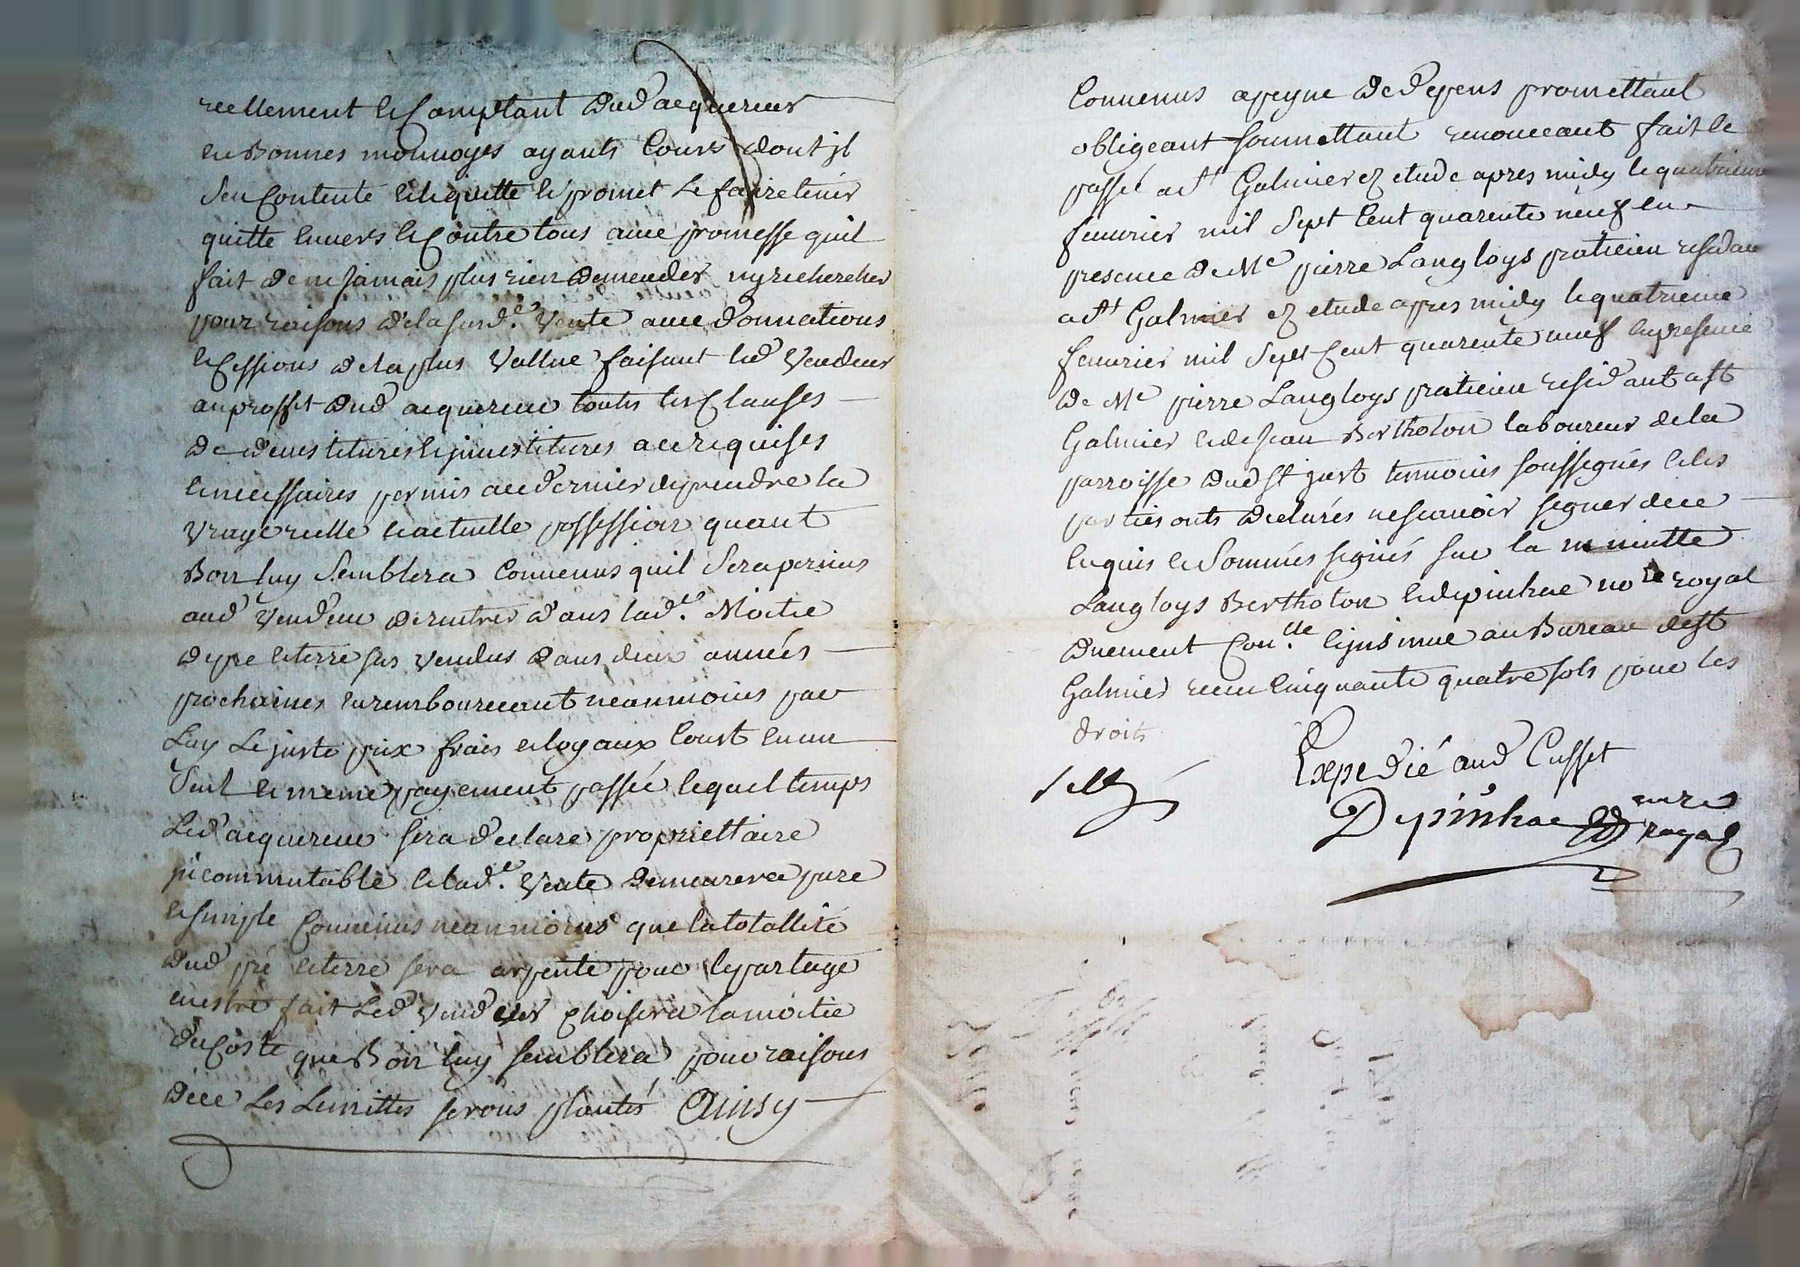 reellement et Comptant dud acquereur
en Bonnes monnoyes ayants Cours dont jl
sen Contente et le quitte et promet le faire tenir
quitte envers et Contre tous avec promesse quil
fait de ne jamais plus rien demender ny rechercher
pour raisons de la susd.e Vente avec donnations
et Cessions de la plus Vallue faisant led Vendeur
au proffit dud acquereur toutes les Clauses
de devestitures et jnvestitures a ce requises
et necessaires permis a ce dernier den prendre la
vraye reelle et actuelle possession quant
Bon luy Semblera Convenus quil Sera permis
aud Vendeur de rentrer dans lad.e Moitie
de pre et terre sus Vendus dans deux années
prochaines en rembourceant neanmoins par
Luy Le juste prix frais et loyaux Coust en un
Seul et meme payement passée lequel temps
Led acquereur sera declare propriettaire
jncommutable et lad.e Vente demeurera pure
et simple Convenus neanmoins que la totallité
dud pré et terre sera arpente pour le partage
en estre fait Led Vendeur choisira la moitie
du Costé que Bon luy semblera pour raisons
de ce Les Limittes serons plantés Ainsy
Convenus a peyne de depens promettant
obligeant soumettant renonceant fait et
passé a St Galmier ez etude apres midy le quatrieme
fevurier mil Sept Cent quarente neuf en
presence de Me pierre Langloys praticien residant
a St Galmier ez etude apres midy le quatrieme
fevurier mil Sept Cent quarente neuf en presence
de Me pierre Langloys praticien residant a St
Galmier et de Jean Bertholon laboureur de la
parroisse dud St just temoins soussignés et les
parties onts declarés ne scavoir signer de ce
enquis et Sommés signés sur la minutte
Langloys Bertholon et depinhac no.re royal
duement Con.lle et jnsinue au Bureau de St
Galmier receu Cinquante quatre sols pour les
droits
Expedié aud Cusset
Depinhac
royal